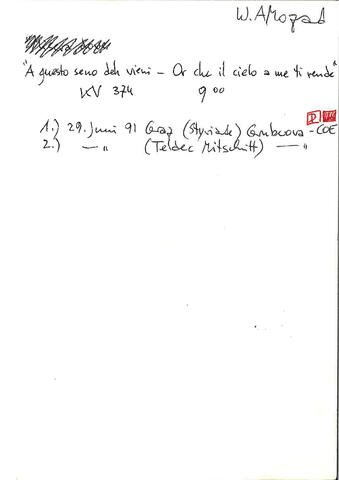 W. A Mozart
"A questo seno deh vieni – Or che il cielo a me ti rende"
KV 374 9⁰⁰
1.) 29. Juni 91 Graz (Styriarte) Gruberova - COE
2.) —„— (Teldec Mitschnitt) —„—